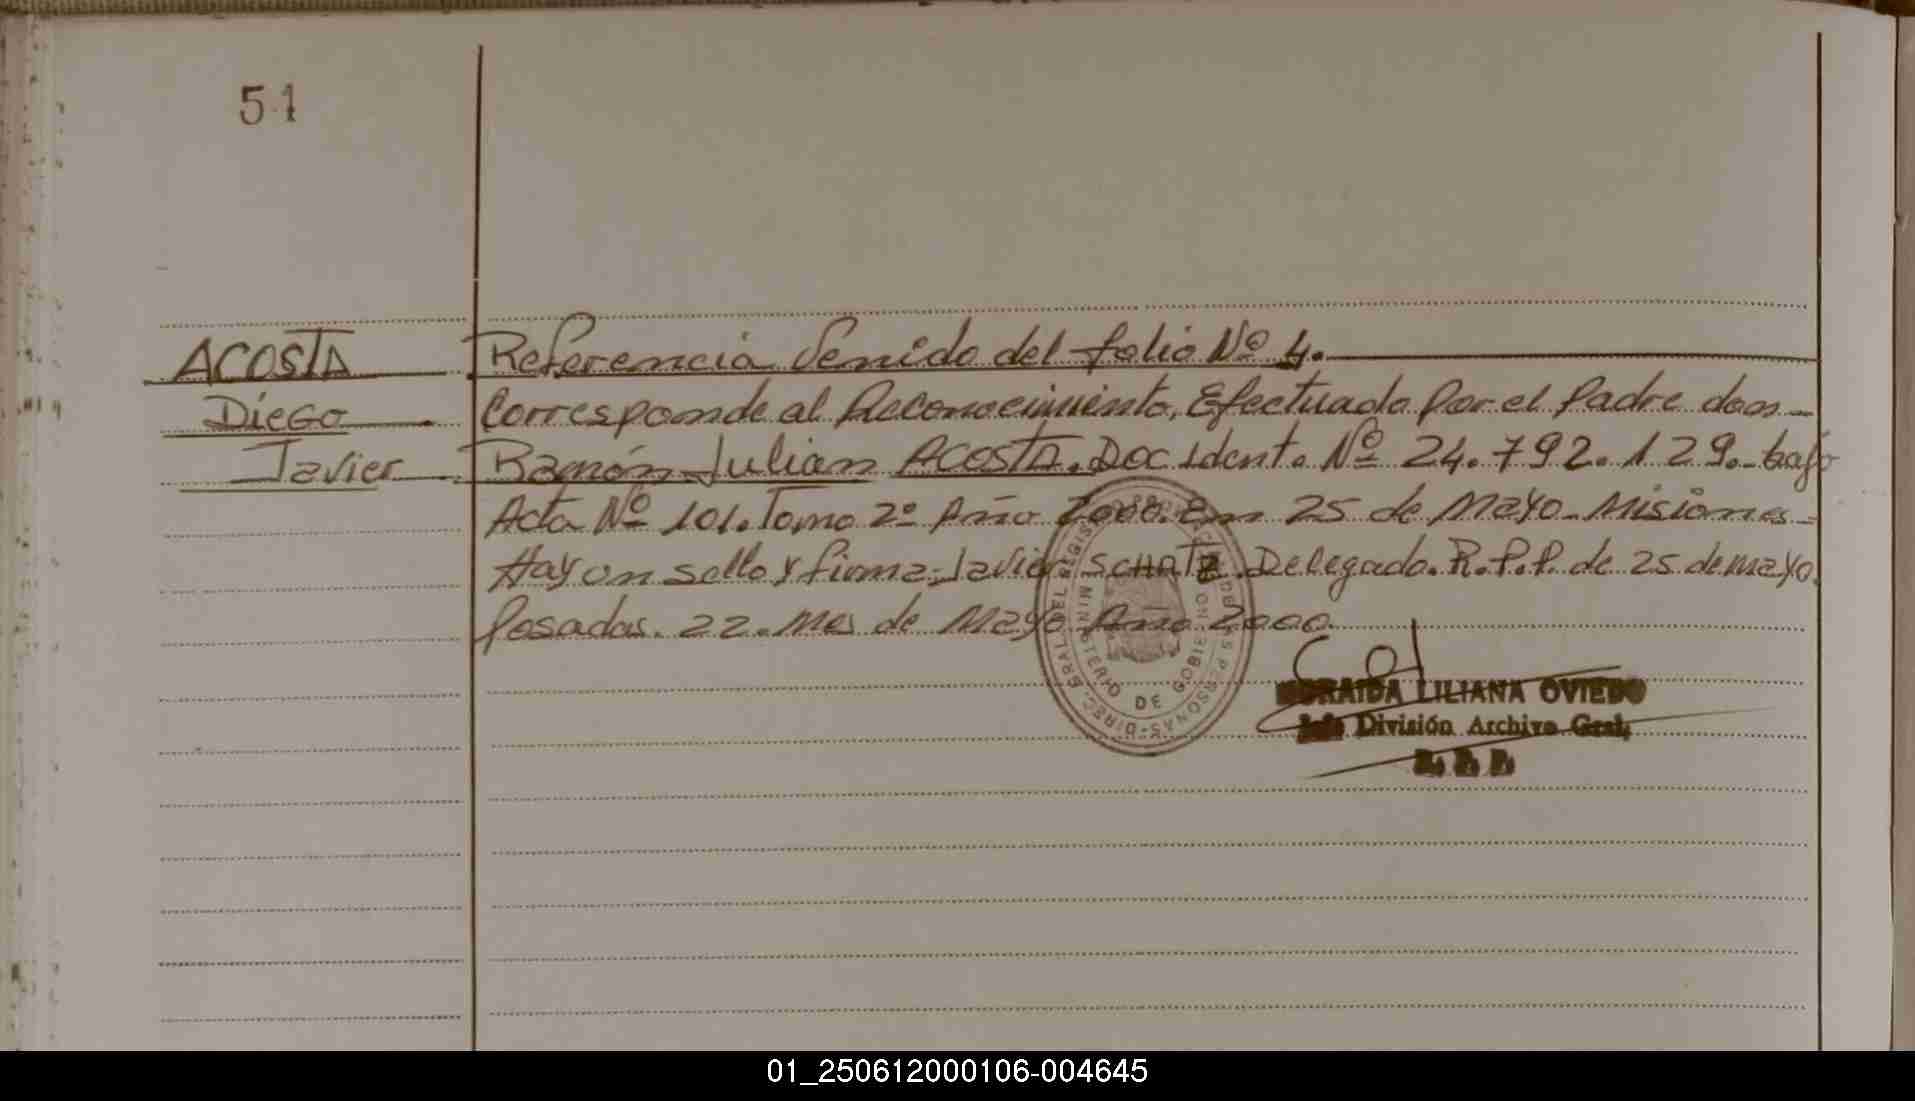 51
ACOSTA Referencia Venido del folio Nº 4.
Diego Corresponde al Reconocimiento, Efectuado Por el Padre don-
Javier Ramón Julian ACOSTA. Doc ident. Nº 24.792.129.- bajo
Acta Nº 101. Tomo 2º Año 2000. En 25 de Mayo - Misiones -
Hay un sello y firma - Javier SCHATZ. Delegado. R.P.P. de 25 de mayo.
Posadas. 22. Mes de Mayo Año 2000.
DIREC. GRAL. DEL REGISTRO PROV. DE LAS PERSONAS
MINISTERIO DE GOBIERNO
LILIANA OVIEDO
Jefe División Archivo Gral.
R. P. P.
01_250612000106-004645